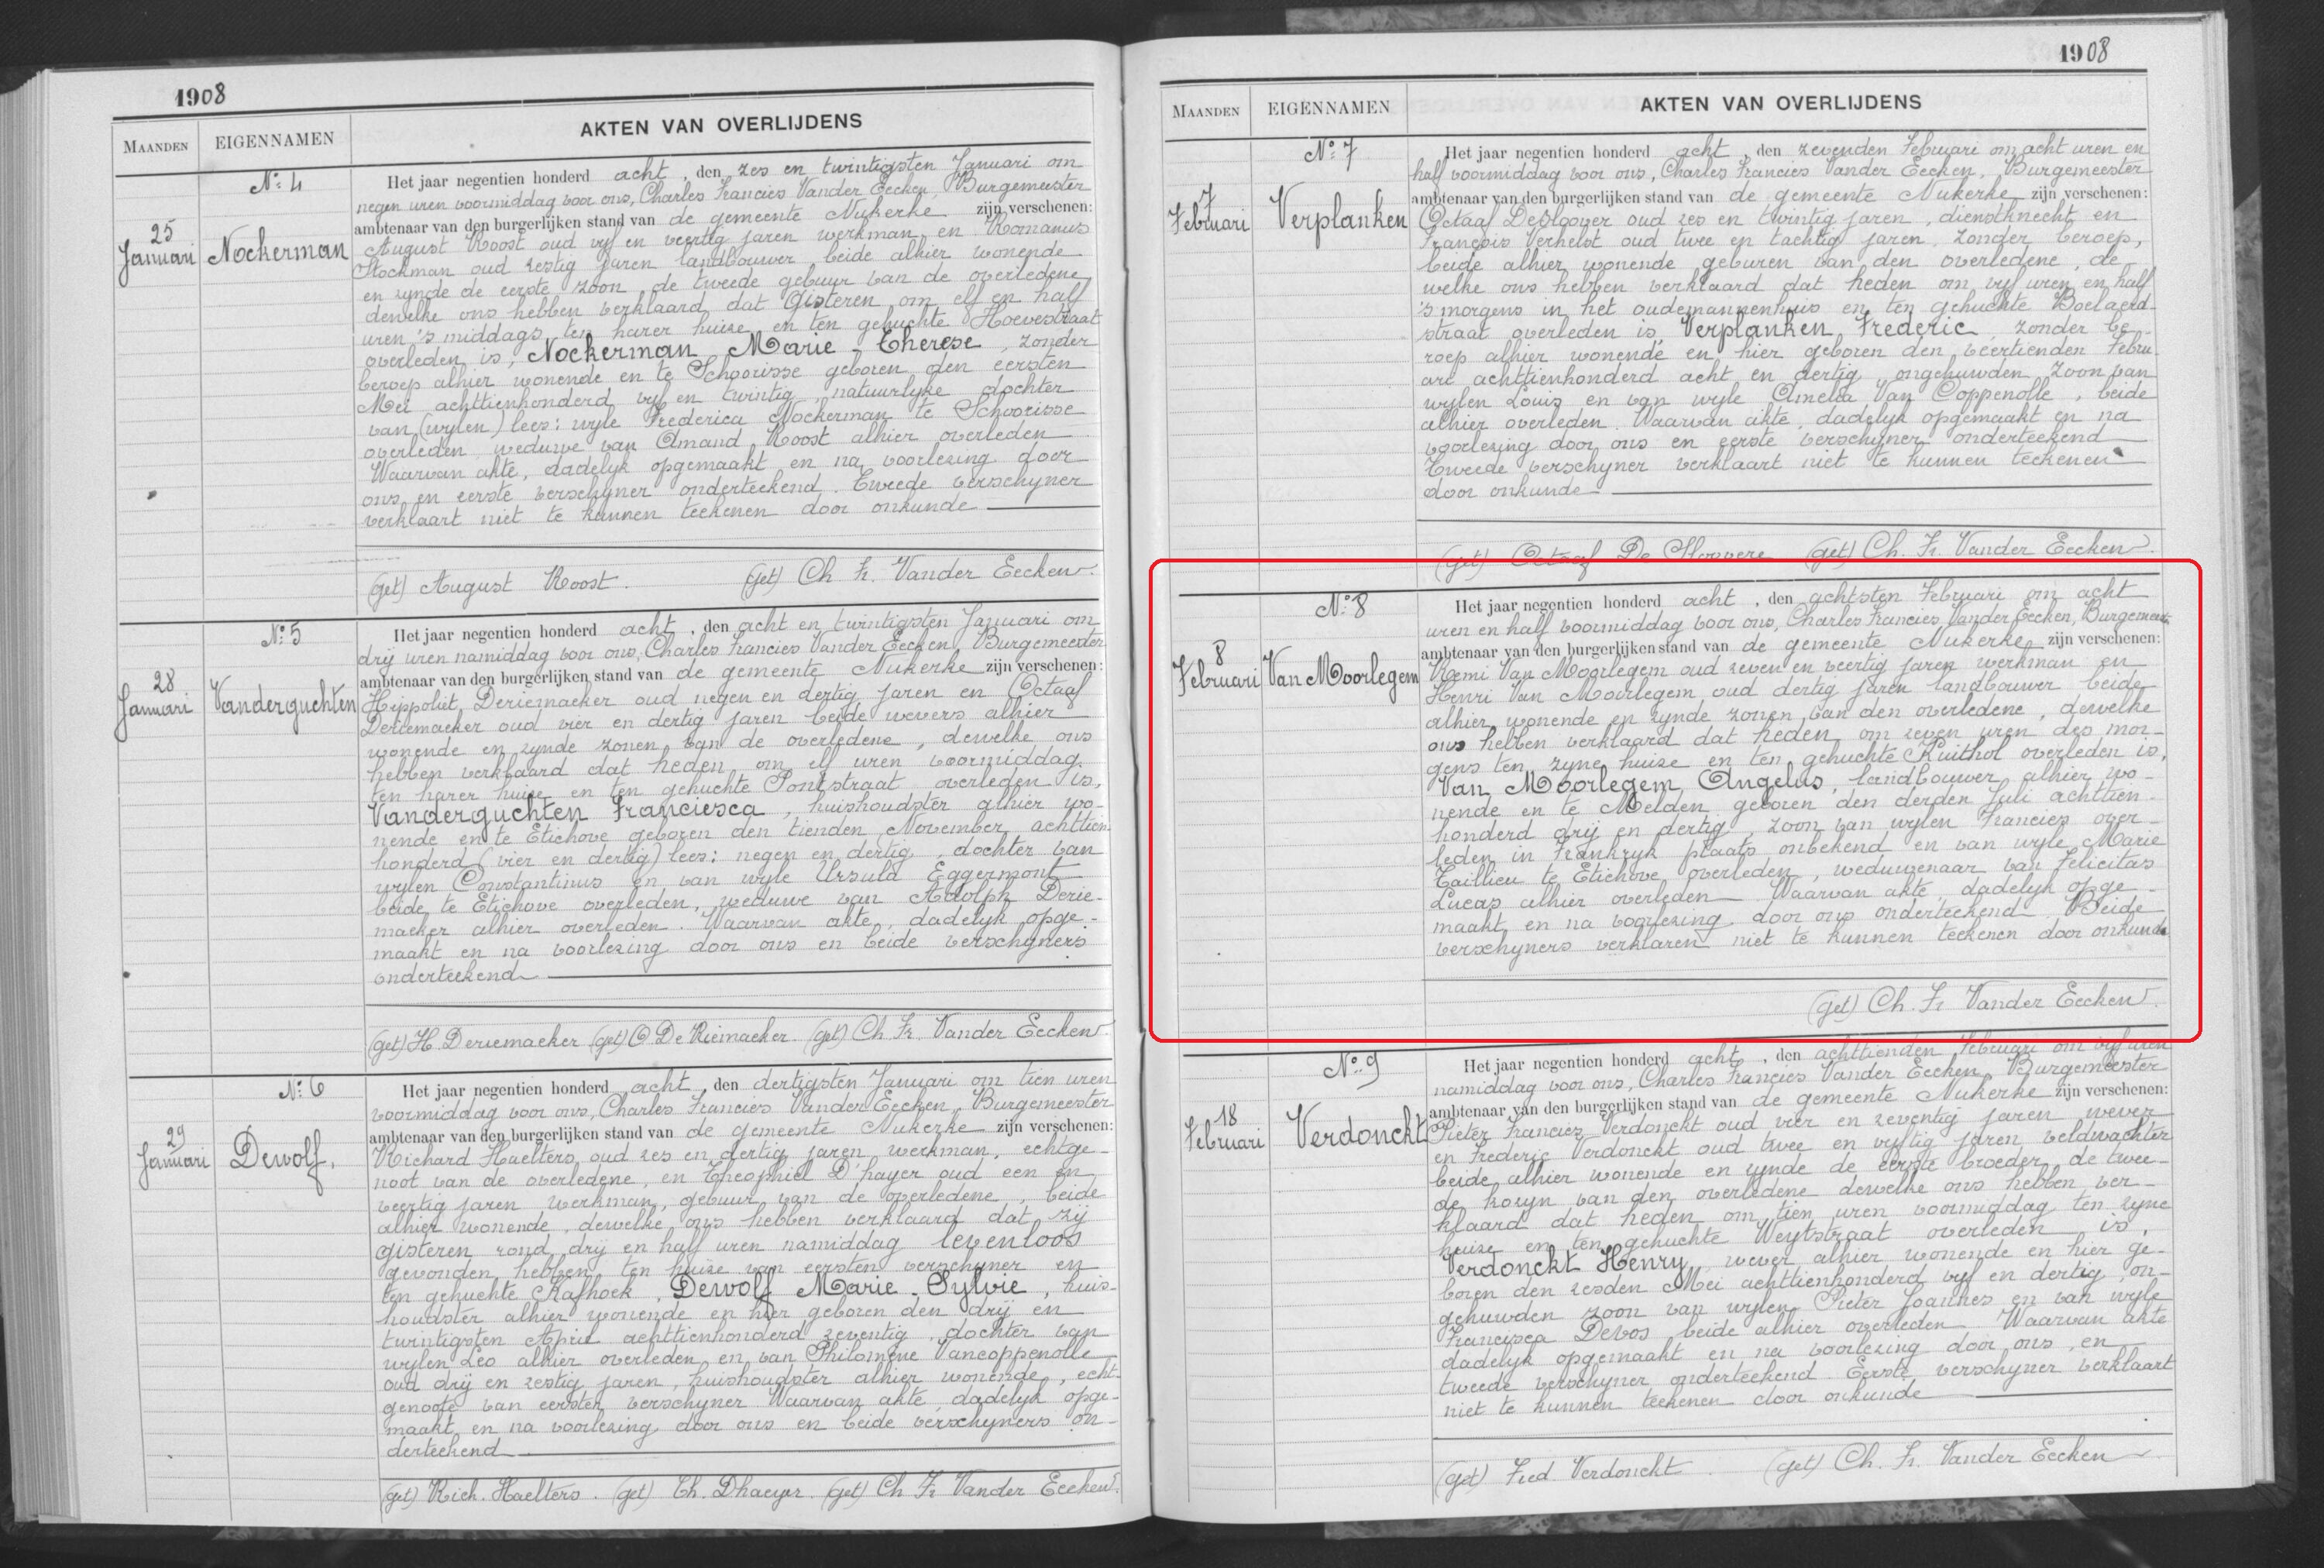 1908
MAANDEN
EIGENNAMEN
AKTEN VAN OVERLIJDENS
No 4
25
Januari
Nockerman
Het jaar negentien honderd acht, den zes en twintigsten Januari om
negen uren voormiddag voor ons, Charles Francies Vander Eecken, Burgemeester
ambtenaar van den burgerlijken stand van de gemeente Nukerke zijn verschenen:
August Roost oud vyf en veertig jaren werkman en Romanus
Stockman oud zestig jaren landbouwer, beide alhier wonende
en zynde de eerste zoon de tweede gebuur van de overledene
dewelke ons hebben verklaard dat gisteren om elf en half
uren 's middags ten harer huize en ten gehuchte Hoevestraat
overleden is, Nockerman Marie-Therese, zonder
beroep alhier wonende en te Schoorisse geboren den eersten
Mei achttienhonderd vyf en twintig, natuurlyke dochter
van (wylen) lees: wyle Frederica Nockerman te Schoorisse
overleden weduwe van Amand Roost alhier overleden
Waarvan akte, dadelyk opgemaakt en na voorlezing door
ons en eerste verschyner onderteekend. Tweede verschyner
verklaart niet te kunnen teekenen door onkunde
(get) August Roost. (get) Ch Fr. Vander Eecken.
No 5
28
Januari
Vanderguchten
Het jaar negentien honderd acht, den acht en twintigsten Januari om
drij uren namiddag voor ons, Charles Francies Vander Eecken, Burgemeester
ambtenaar van den burgerlijken stand van de gemeente Nukerke zijn verschenen:
Hippoliet Deriemaeker oud negen en dertig jaren en Octaaf
Deriemaeker oud vier en dertig jaren beide wevers alhier
wonende en zynde zonen van de overledene, dewelke ons
hebben verklaard dat heden om elf uren voormiddag
ten harer huize en ten gehuchte Pontstraat overleden is,
Vanderguchten Franciesca, huishoudster alhier wo-
nende en te Etichove geboren den tienden November achttien
honderd (vier en dertig) lees: negen en dertig, dochter van
wylen Constantinus en van wyle Ursula Eggermont
beide te Etichove overleden, weduwe van Adolph Derie-
maeker alhier overleden. Waarvan akte, dadelyk opge-
maakt en na voorlezing door ons en beide verschyners
onderteekend
(get) H. Deriemaeker (get) O. De Riemaeker (get) Ch Fr. Vander Eecken.
No 6
29
Januari
Dewolf.
Het jaar negentien honderd acht, den dertigsten Januari om tien uren
voormiddag voor ons, Charles Francies Vander Eecken, Burgemeester
ambtenaar van den burgerlijken stand van de gemeente Nukerke zijn verschenen:
Richard Haelters oud zes en dertig jaren werkman, echtge-
noot van de overledene, en Theophiel D'hayer oud een en
veertig jaren werkman, gebuur van de overledene, beide
alhier wonende, dewelke ons hebben verklaard dat zij
gisteren rond drij en half uren namiddag levenloos
gevonden hebben ten huize van eersten verschyner en
ten gehuchte Kafhoek, Dewolf Marie-Sylvie, huis-
houdster alhier wonende en hier geboren den drij en
twintigsten April achttienhonderd zeventig, dochter van
wylen Leo alhier overleden en van Philomene Vancoppenolle
oud drij en zestig jaren, huishoudster alhier wonende, echt-
genoote van eersten verschyner. Waarvan akte, dadelyk opge-
maakt en na voorlezing door ons en beide verschyners on-
derteekend
(get) Rich. Haelters. (get) Th. Dhaeyer. (get) Ch Fr Vander Eecken.
1908
MAANDEN
EIGENNAMEN
AKTEN VAN OVERLIJDENS
No 7
7
Februari
Verplanken
Het jaar negentien honderd acht, den zevenden Februari om acht uren en
half voormiddag voor ons, Charles Francies Vander Eecken, Burgemeester
ambtenaar van den burgerlijken stand van de gemeente Nukerke zijn verschenen:
Octaaf Desloover oud zes en twintig jaren, dienstknecht en
François Verhelst oud twee en tachtig jaren, zonder beroep,
beide alhier wonende geburen van den overledene, de-
welke ons hebben verklaard dat heden om vyf uren en half
's morgens in het oudemannenhuis en ten gehuchte Boelaerd
straat overleden is, Verplanken Frederic, zonder be-
roep alhier wonende en hier geboren den veertienden Febru-
ari achttienhonderd acht en dertig, ongehuwden zoon van
wylen Louis en van wyle Amelia Van Coppenolle, beide
alhier overleden. Waarvan akte, dadelyk opgemaakt en na
voorlezing door ons en eerste verschyner onderteekend
Tweede verschyner verklaart niet te kunnen teekenen
door onkunde
(get) Octaaf De Sloovere (get) Ch. Fr. Vander Eecken.
No 8
8
Februari
Van Moorlegem
Het jaar negentien honderd acht, den achtsten Februari om acht
uren en half voormiddag voor ons, Charles Francies Vander Eecken, Burgemeester
ambtenaar van den burgerlijken stand van de gemeente Nukerke zijn verschenen:
Remi Van Moorlegem oud zeven en veertig jaren werkman en
Henri Van Moorlegem oud dertig jaren landbouwer beide
alhier wonende en zynde zonen van den overledene, dewelke
ons hebben verklaard dat heden om zeven uren des mor-
gens ten zyne huize en ten gehuchte Ruithol overleden is,
Van Moorlegem Angelus, landbouwer alhier wo-
nende en te Melden geboren den derden Juli achttien-
honderd drij en dertig, zoon van wylen Francies over-
leden in Frankryk plaats onbekend en van wyle Marie
Taillieu te Etichove overleden, weduwenaar van Felicitas
Lucas alhier overleden. Waarvan akte, dadelyk opge-
maakt en na voorlezing door ons onderteekend. Beide
verschyners verklaren niet te kunnen teekenen door onkunde
(get) Ch. Fr Vander Eecken.
No 9
18
Februari
Verdonckt
Het jaar negentien honderd acht, den achttienden Februari om vyf uren
namiddag voor ons, Charles Francies Vander Eecken, Burgemeester
ambtenaar van den burgerlijken stand van de gemeente Nukerke zijn verschenen:
Pieter Francies Verdonckt oud vier en zeventig jaren wever
en Frederic Verdonckt oud twee en vyftig jaren veldwachter
beide alhier wonende en zynde de eerste broeder, de twee-
de kozyn van den overledene dewelke ons hebben ver-
klaard dat heden om tien uren voormiddag ten zyne
huize en ten gehuchte Weytstraat overleden is,
Verdonckt Henry, wever alhier wonende en hier ge-
boren den zesden Mei achttienhonderd vyf en dertig, on-
gehuwden zoon van wylen Pieter Joannes en van wyle
Francisca Devos beide alhier overleden. Waarvan akte
dadelyk opgemaakt en na voorlezing door ons en
tweede verschyner onderteekend. Eerste verschyner verklaart
niet te kunnen teekenen door onkunde
(get) Fred Verdonckt. (get) Ch. Fr. Vander Eecken